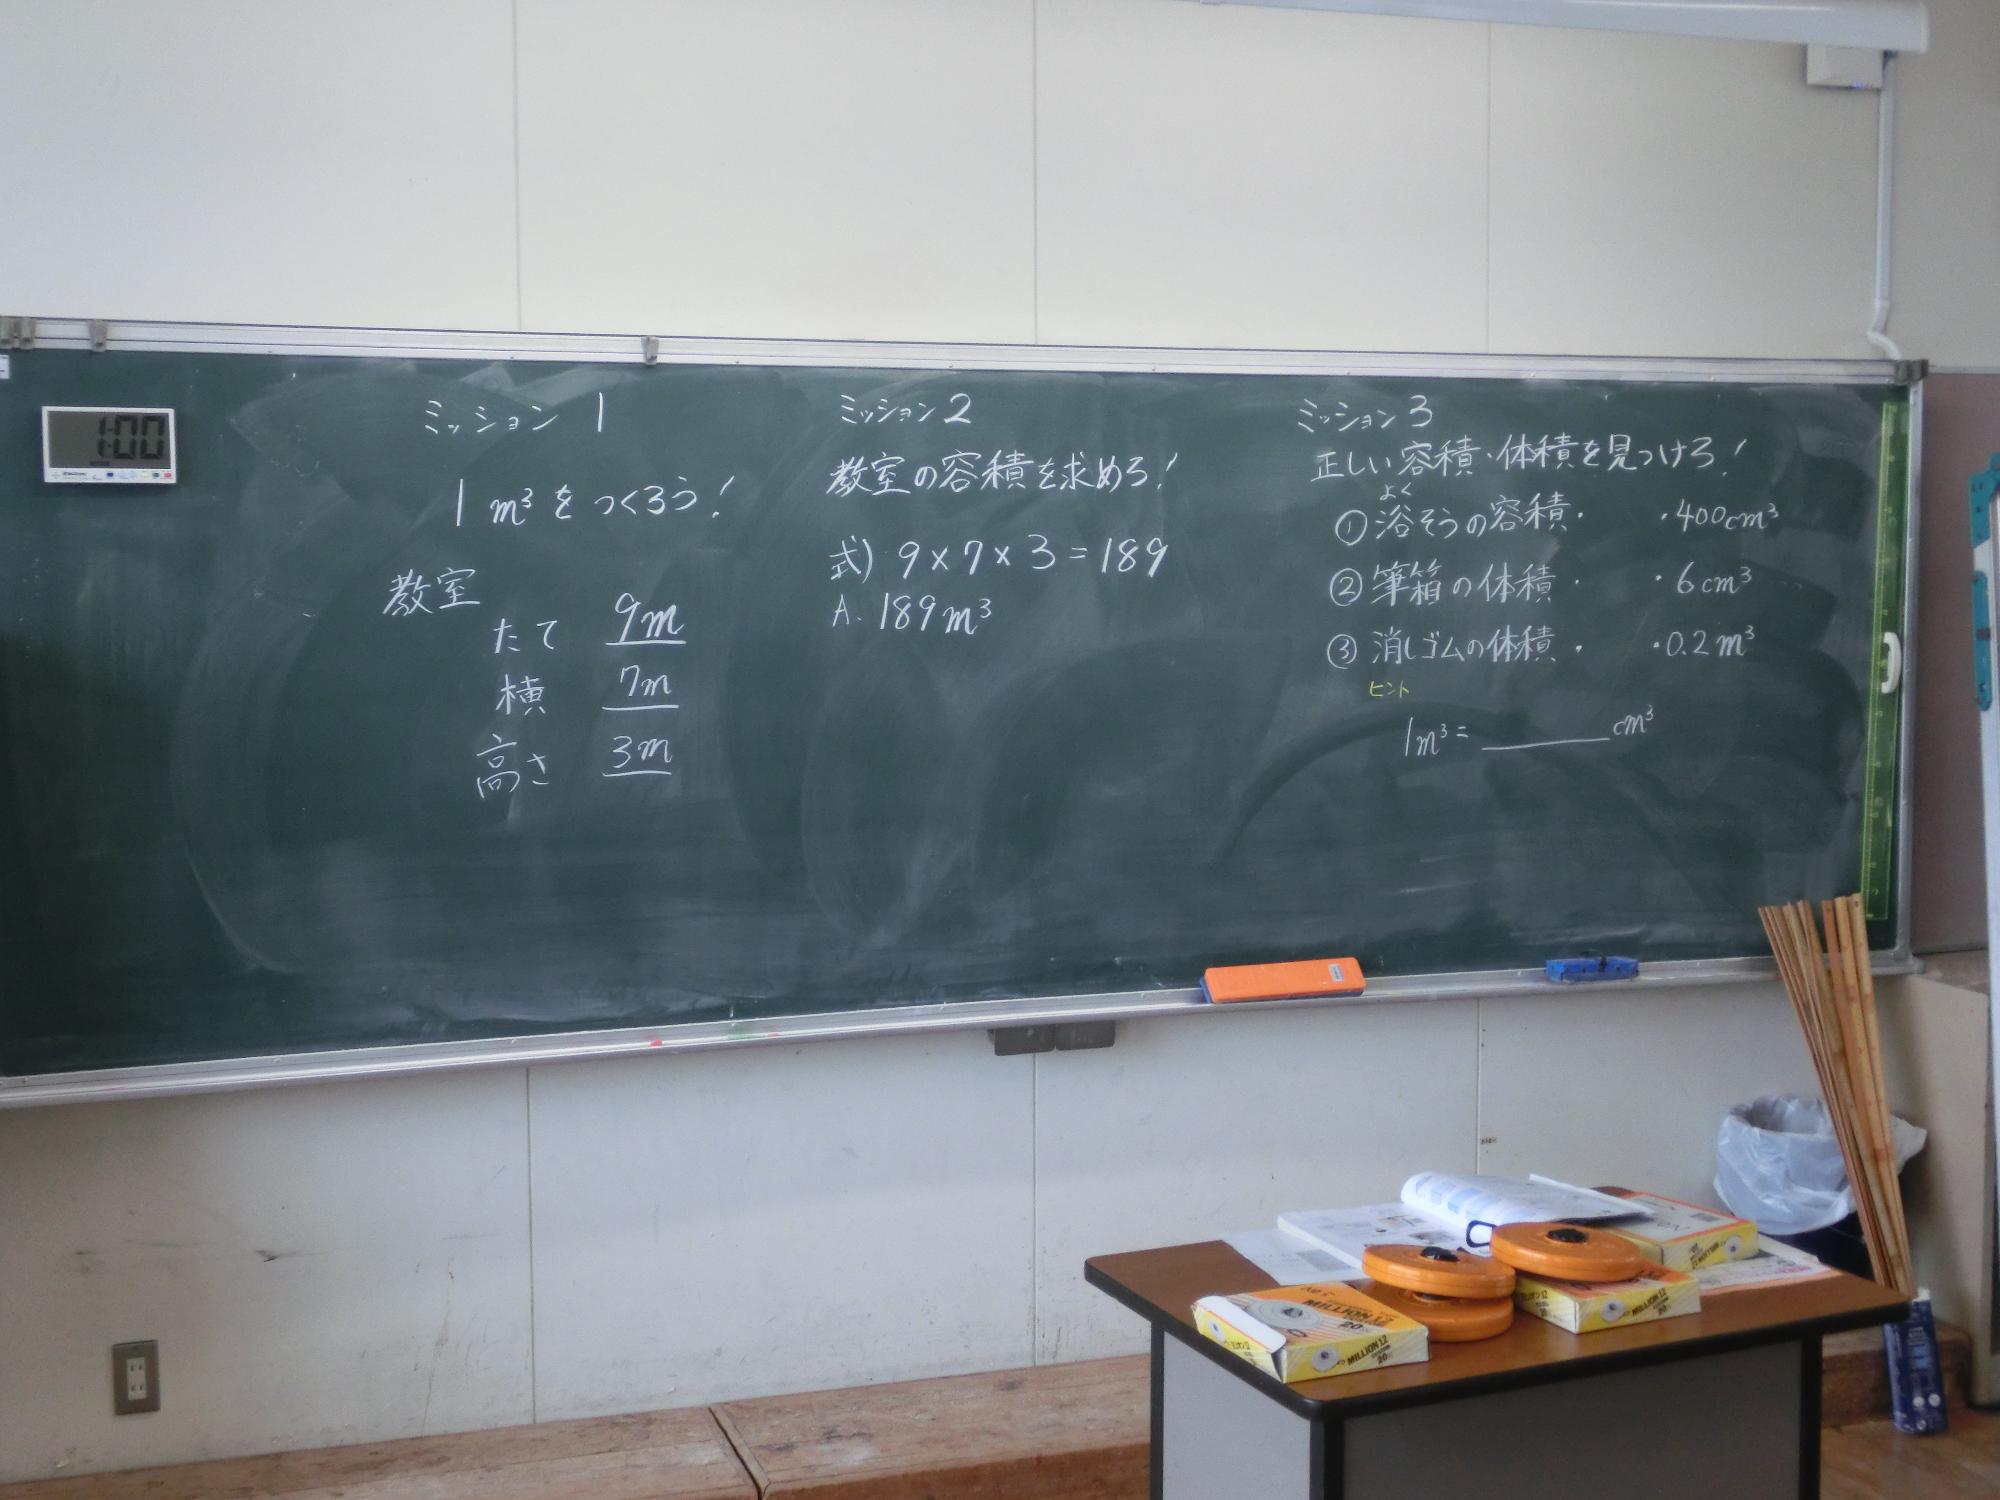 1:00
ミッション 1
1 m³をつくろう!
教室
たて 9m
横 7m
高さ 3m
ミッション2
教室の容積を求めろ!
式) 9×7×3=189
A. 189m³
ミッション3
正しい容積・体積を見つけろ!
よく
①浴そうの容積・ ・400cm³
②筆箱の体積・ ・6cm³
③消しゴムの体積・ ・0.2m³
ヒント
1m³= ______ cm³
MILLION 12
20
MILLION 12
20
MILLION 12
20